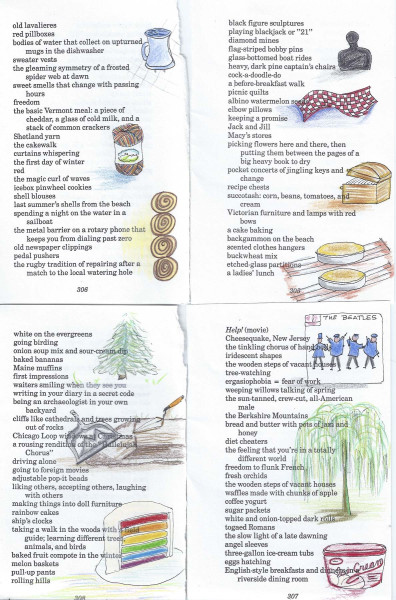 old lavalieres
red pillboxes
bodies of water that collect on upturned
mugs in the dishwasher
sweater vests
the gleaming symmetry of a frosted
spider web at dawn
sweet smells that change with passing
hours
freedom
the basic Vermont meal: a piece of
cheddar, a glass of cold milk, and a
stack of common crackers
Shetland yarn
the cakewalk
curtains whispering
the first day of winter
red
the magic curl of waves
icebox pinwheel cookies
shell blouses
last summer's shells from the beach
spending a night on the water in a
sailboat
the metal barrier on a rotary phone that
keeps you from dialing past zero
old newspaper clippings
pedal pushers
the rugby tradition of repairing after a
match to the local watering hole
306
black figure sculptures
playing blackjack or "21"
diamond mines
flag-striped bobby pins
glass-bottomed boat rides
heavy, dark pine captain's chairs
cock-a-doodle-do
a before-breakfast walk
picnic quilts
albino watermelon seeds
elbow pillows
keeping a promise
Jack and Jill
Macy's stores
picking flowers here and there, then
putting them between the pages of a
big heavy book to dry
pocket concerts of jingling keys and
change
recipe chests
succotash: corn, beans, tomatoes, and
cream
Victorian furniture and lamps with red
bows
a cake baking
backgammon on the beach
scented clothes hangers
buckwheat mix
etched-glass partitions
a ladies' lunch
305
white on the evergreens
going birding
onion soup mix and sour-cream dip
baked bananas
Maine muffins
first impressions
waiters smiling when they see you
writing in your diary in a secret code
being an archaeologist in your own
backyard
cliffs like cathedrals and trees growing
out of rocks
Chicago Loop windows at Christmas
a rousing rendition of the "Hallelujah
Chorus"
driving alone
going to foreign movies
adjustable pop-it beads
liking others, accepting others, laughing
with others
making things into doll furniture
rainbow cakes
ship's clocks
taking a walk in the woods with a field
guide; learning different trees,
animals, and birds
baked fruit compote in the winter
melon baskets
pull-up pants
rolling hills
308
THE BEATLES
Help! (movie)
Cheesequake, New Jersey
the tinkling chorus of handbells
iridescent shapes
the wooden steps of vacant houses
tree-watching
ergasiophobia = fear of work
weeping willows talking of spring
the sun-tanned, crew-cut, all-American
male
the Berkshire Mountains
bread and butter with pots of jam and
honey
diet cheaters
the feeling that you're in a totally
different world
freedom to flunk French
fresh orchids
the wooden steps of vacant houses
waffles made with chunks of apple
coffee yogurt
sugar packets
white and onion-topped dark rolls
togaed Romans
the slow light of a late dawning
angel sleeves
three-gallon ice-cream tubs
eggs hatching
English-style breakfasts and dinners in
riverside dining room
Ice Cream
307